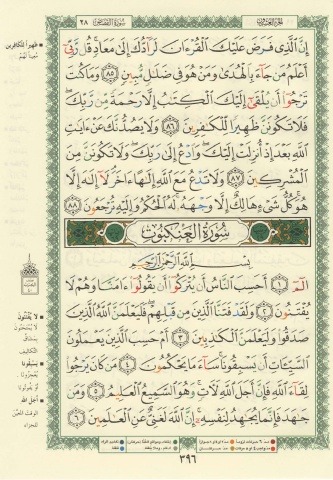 الجزء العشرون
سورة القصص
٢٨
إِنَّ الَّذِي فَرَضَ عَلَيْكَ الْقُرْءَانَ لَرَادُّكَ إِلَى مَعَادٍ قُل رَّبِّي
أَعْلَمُ مَن جَاءَ بِالْهُدَى وَمَنْ هُوَ فِي ضَلَالٍ مُّبِينٍ ٨٥ وَمَا كُنتَ
تَرْجُوا أَن يُلْقَى إِلَيْكَ الْكِتَبُ إِلَّا رَحْمَةً مِّن رَّبِّكَ
فَلَا تَكُونَنَّ ظَهِيرًا لِّلْكَفِرِينَ ٨٦ وَلَا يَصُدُّنَّكَ عَنْ ءَايَتِ
اللَّهِ بَعْدَ إِذْ أُنزِلَتْ إِلَيْكَ وَادْعُ إِلَى رَبِّكَ وَلَا تَكُونَنَّ مِنَ
الْمُشْرِكِينَ ٨٧ وَلَا تَدْعُ مَعَ اللَّهِ إِلَهًا ءَاخَرَ لَا إِلَهَ إِلَّا
هُوَ كُلُّ شَيْءٍ هَالِكٌ إِلَّا وَجْهَهُ لَهُ الْحُكْمُ وَإِلَيْهِ تُرْجَعُونَ ٨٨
سُورَةُ الْعَنْكَبُوتِ
بِسْمِ اللَّهِ الرَّحْمَنِ الرَّحِيمِ
الم ١ أَحَسِبَ النَّاسُ أَن يُتْرَكُوا أَن يَقُولُوا ءَامَنَّا وَهُمْ لَا
يُفْتَنُونَ ٢ وَلَقَدْ فَتَنَّا الَّذِينَ مِن قَبْلِهِمْ فَلَيَعْلَمَنَّ اللَّهُ الَّذِينَ
صَدَقُوا وَلَيَعْلَمَنَّ الْكَذِبِينَ ٣ أَمْ حَسِبَ الَّذِينَ يَعْمَلُونَ
السَّيِّئَاتِ أَن يَسْبِقُونَا سَاءَ مَا يَحْكُمُونَ ٤ مَن كَانَ يَرْجُوا
لِقَاءَ اللَّهِ فَإِنَّ أَجَلَ اللَّهِ لَآتٍ وَهُوَ السَّمِيعُ الْعَلِيمُ ٥ وَمَن
جَهَدَ فَإِنَّمَا يُجَهِدُ لِنَفْسِهِ إِنَّ اللَّهَ لَغَنِيٌّ عَنِ الْعَلَمِينَ ٦
ظهيراً للكافرين
معيناً لهم
لا يُفتنون
لا يُمتحنون
بمشاق
التكاليف
يسبقونا
يُعجزونا
أو يفوتونا
أجل الله
الوقت المعيّن
للجزاء
٣٩٦